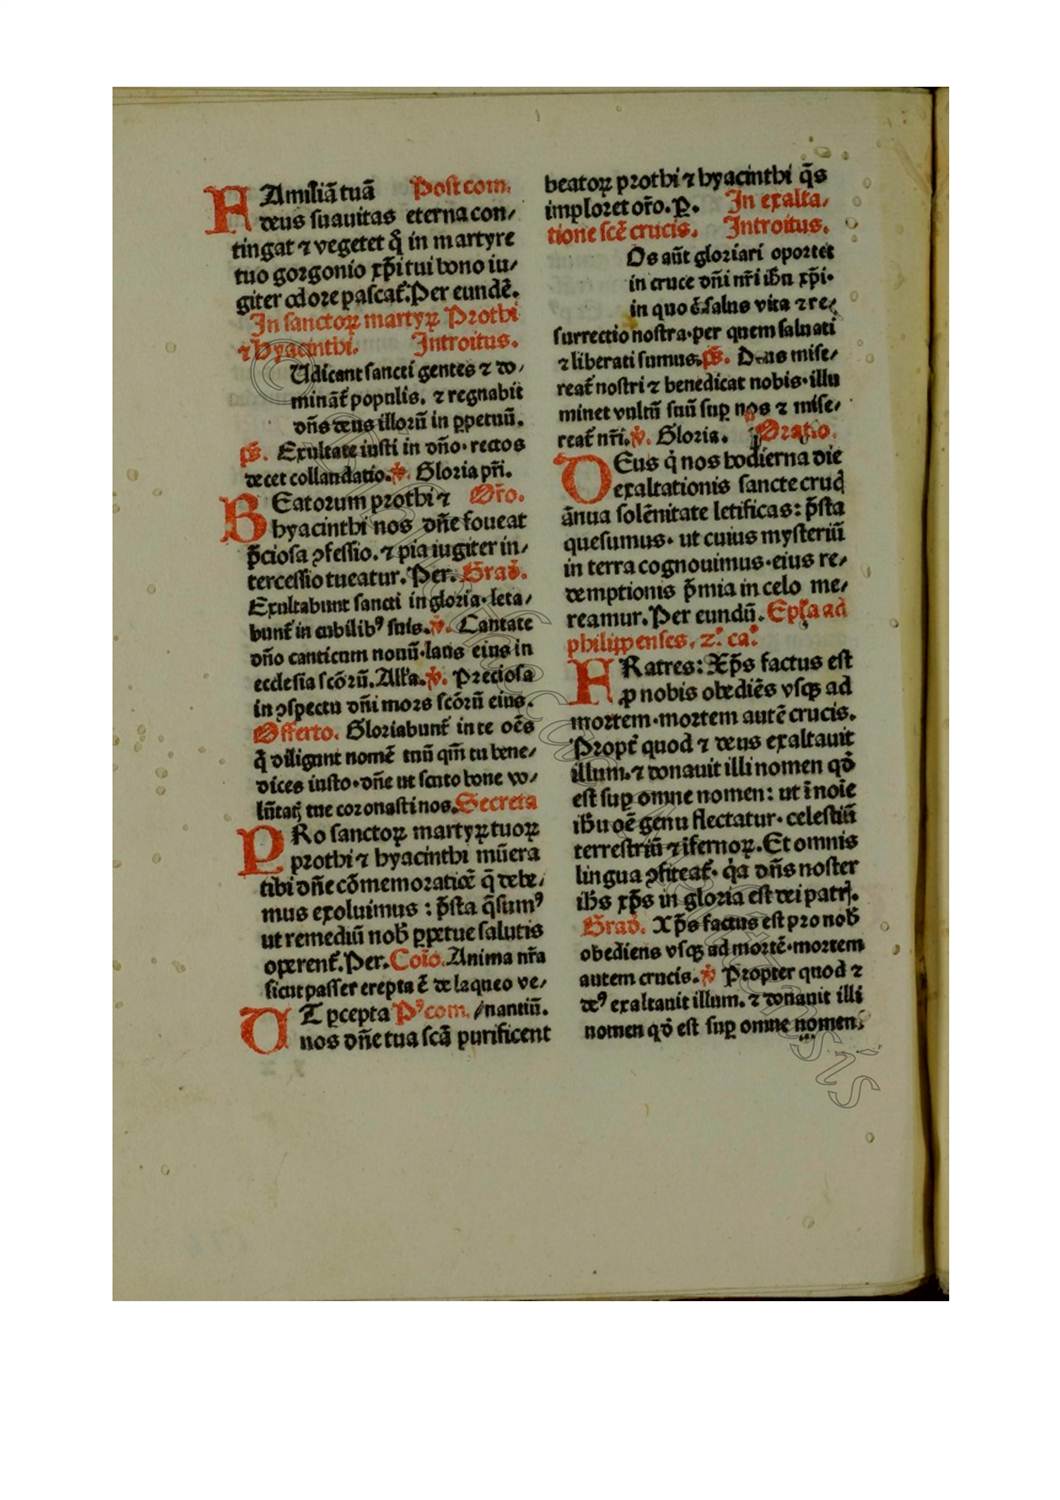 FAmiliã tuã Post com.
deus suauitas eterna con/
tingat ⁊ vegetet q̃ in martyre
tuo gorgonio xp̃i tui bono iu/
giter odore pascat᷑. Per eundẽ.
In sanctoꝝ martyꝝ Prothi
⁊ hyacinthi. Introitus.
IUdicant sancti gentes ⁊ do/
minãt᷑ populis. ⁊ regnabit
dñs deus illorũ in ꝑpetuũ.
ps̃. Exultate iusti in dño· rectos
decet collaudatio. ℣. Gloria pr̃i.
BEatorum prothi ⁊ Or̃o.
hyacinthi nos dñe foueat
p̃ciosa ꝯfessio. ⁊ pia iugiter in/
tercessio tueatur. Per. Grad̃.
Exultabunt sancti in gloria· leta/
bunt᷑ in cubilibꝰ suis. ℣. Cantate
dño canticum nouũ· laus eius in
ecclesia scõrũ. All'a. ℣. Preciosa
in ꝯspectu dñi mors scõrũ eius.
Offerto. Gloriabunt᷑ in te oẽs
q̃ diligunt nomẽ tuũ qm̃ tu bene/
dices iusto· dñe ut scuto bone vo/
lũtatꝭ tue coronasti nos. Secreta
PRo sanctoꝝ martyꝝ tuoꝝ
prothi ⁊ hyacinthi mũera
tibi dñe cõmemoratiõe q̃ debe/
mus exoluimus : p̃sta q̃sumꝰ
ut remediũ nob̃ ꝑpetue salutis
operent᷑. Per. Coĩo. Anima nr̃a
sicut passer erepta ẽ de laqueo ve/
UT ꝑcepta Pꝰcom. /nantiũ.
nos dñe tua scã purificent
beatoꝝ prothi ⁊ hyacinthi q̃s
imploret or̃o. P̲. In exalta/
tione scẽ crucis. Introitus.
Os aũt gloriari oportet
in cruce dñi nr̃i ihũ xp̃i·
in quo ẽ salus vita ⁊ re/
surrectio nostra· per quem saluati
⁊ liberati sumus. ps̃. Deus mise/
reat᷑ nostri ⁊ benedicat nobis· illu
minet vultũ suũ suꝑ nos ⁊ mise/
reat᷑ nr̃i. ℣. Gloria. Oratio.
DEus q̃ nos hodierna die
exaltationis sancte crucꝭ
ãnua solẽnitate letificas : p̃sta
quesumus· ut cuius mysteriũ
in terra cognouimus· eius re/
demptionis p̃mia in celo me/
reamur. Per eundũ. Ep̃la ad
philippenses. 2.° ca.°
FRatres : Xp̃s factus est
ꝓ nobis obediẽs vsqꝫ ad
mortem· mortem autẽ crucis.
Propt᷑ quod ⁊ deus exaltauit
illum. ⁊ donauit illi nomen qd̃
est suꝑ omne nomen : ut ĩ noĩe
ihũ oẽ genu flectatur· celestiũ
terrestriũ ⁊ ĩfernoꝝ. Et omnis
lingua ꝯfiteat᷑· q̃a dñs noster
ihs̃ xp̃s in gloria est dei patrꝭ.
Grad̃. Xp̃s factus est pro nob̃
obediens vsqꝫ ad mortẽ· mortem
autem crucis. ℣ Propter quod ⁊
deꝰ exaltauit illum. ⁊ donauit illi
nomen qd̃ est suꝑ omne nomen.